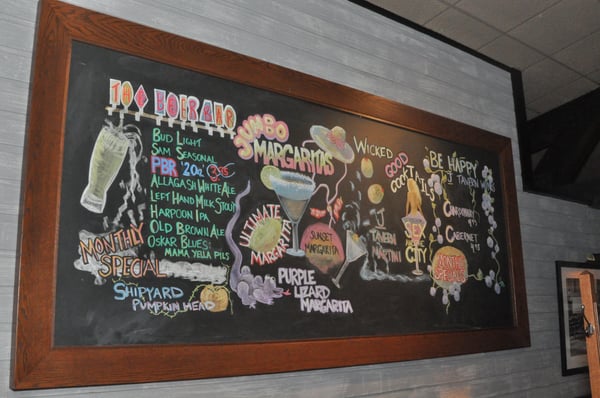 Bud Light
Sam Seasonal
PBR 20oz
Allagash White Ale
Left Hand Milk Stout
Harpoon IPA
Old Brown Ale
Oskar Blues
Mama Yella Pils
Monthly
Special
Shipyard
Pumpkin Head
Jumbo
Margaritas
Ultimate
Margarita
Sunset
Margarita
Purple
Lizard
Margarita
Wicked
Good
Cocktails
J
Tavern
Martini
Sex
City
"Be Happy"
J Tavern
Chardonnay
Cabernet
Monthly
Specials